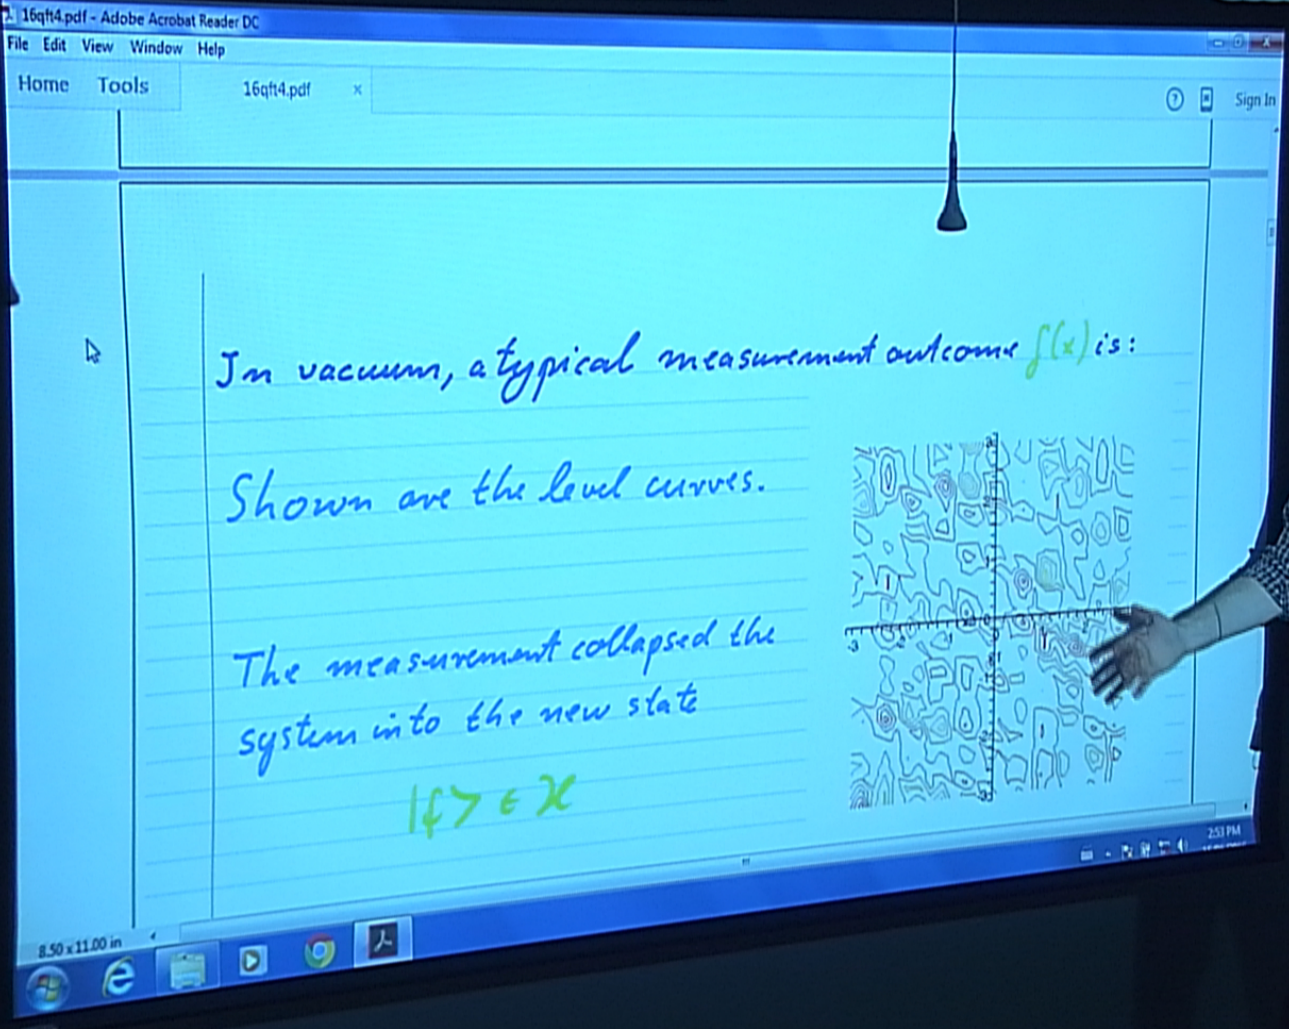 16qft4.pdf - Adobe Acrobat Reader DC
File Edit View Window Help
Home Tools 16qft4.pdf x ? Sign In
In vacuum, a typical measurement outcome f(x) is:
Shown are the level curves.
The measurement collapsed the
system into the new state
|f> ∈ H
-3
8.50 x 11.00 in
2:53 PM